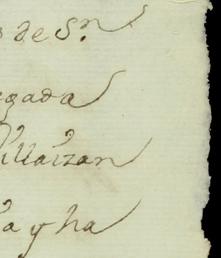 de Sn.
egada
Villaizan
a y ha